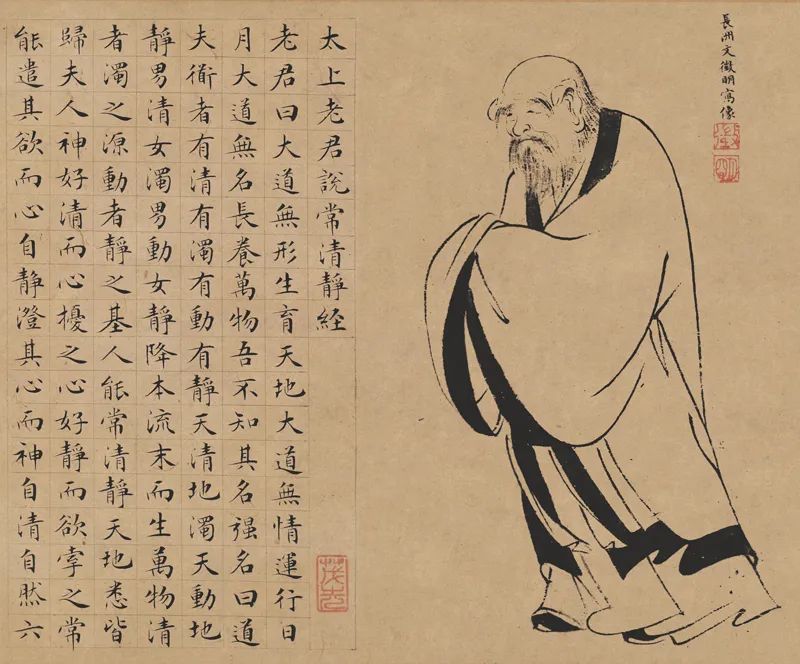 長洲文徵明寫像
太上老君說常清靜経
老君曰大道無形生育天地大道無情運行日
月大道無名長養萬物吾不知其名强名曰道
夫衜者有清有濁有動有靜天清地濁天動地
靜男清女濁男動女靜降本流末而生萬物清
者濁之源動者靜之基人能常清靜天地悉皆
歸夫人神好清而心擾之心好靜而欲牽之常
能遣其欲而心自靜澄其心而神自清自然六